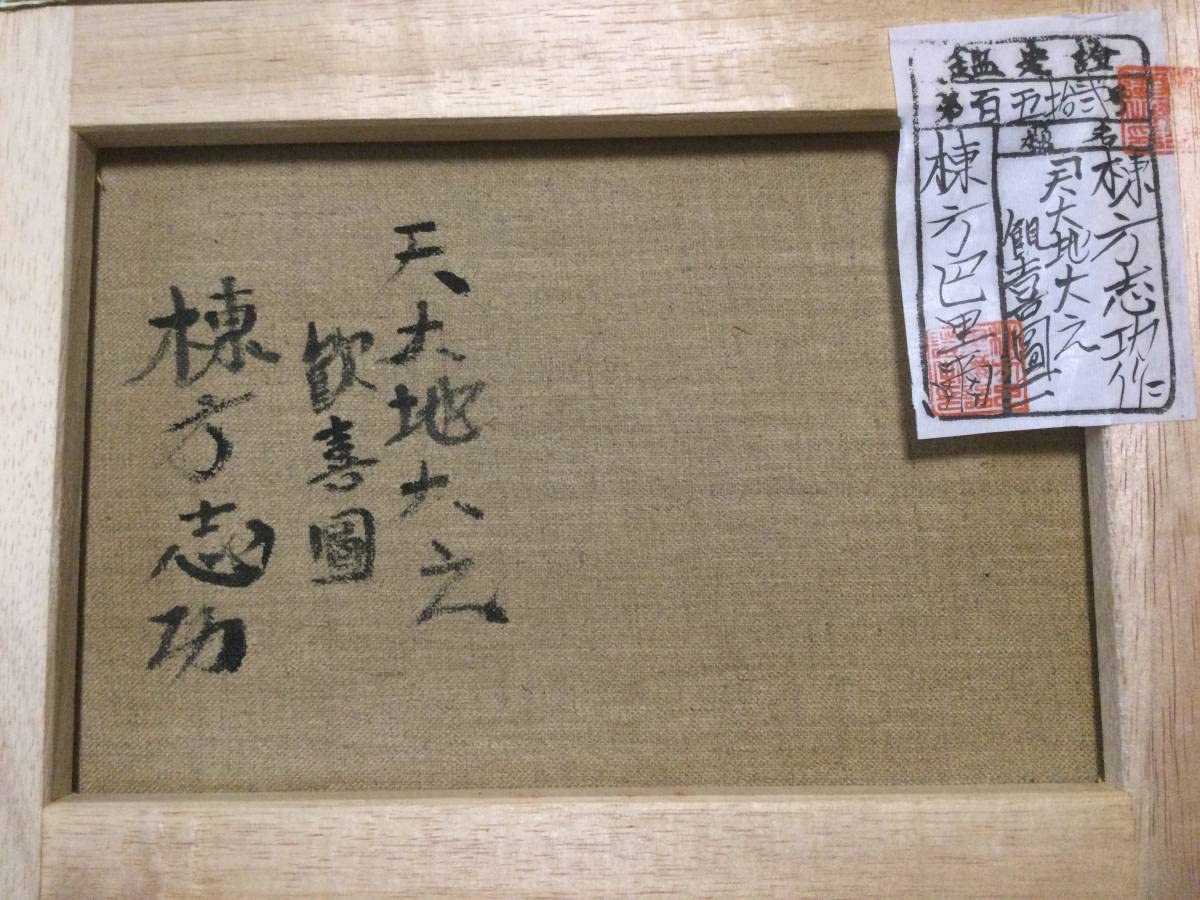 天大地大之
歓喜圖
棟方志功
鑑定證
第百五拾弐号
題名
棟方志功作
「天大地大之
歓喜圖」
棟方巴里爾